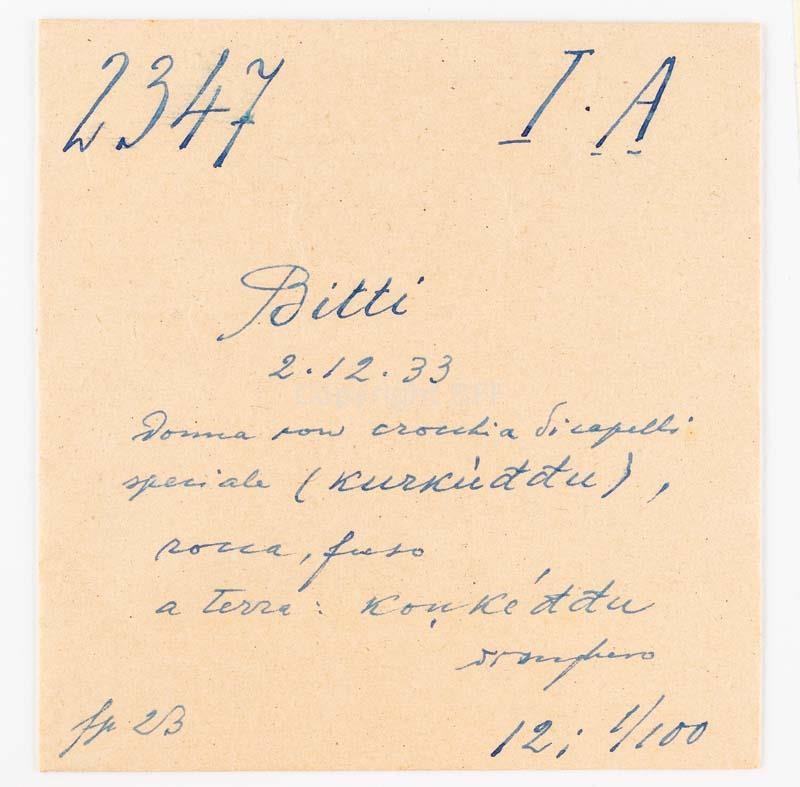 2347 I.A
Bitti
2.12.33
Donna con crocchia di capelli
speciale (kurkúđđu),
rocca, fuso
a terra: koṇkéđđu
fp 2B
12; 1/100